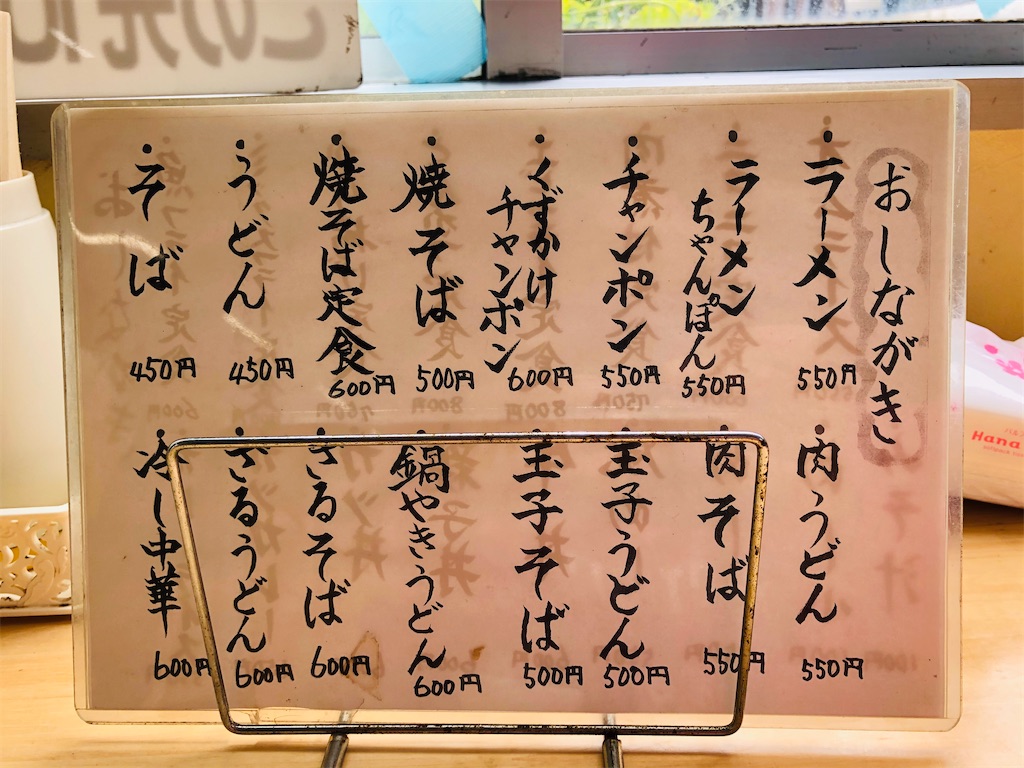 おしながき
・ラーメン
550円
・ラーメン
ちゃんぽん
550円
・チャンポン
550円
・くずかけ
チャンポン
600円
・焼そば
500円
・焼そば定食
600円
・うどん
450円
・そば
450円
・肉うどん
550円
・肉そば
550円
・玉子うどん
500円
・玉子そば
500円
・鍋やきうどん
600円
・ざるそば
600円
・ざるうどん
600円
・冷し中華
600円
Hana